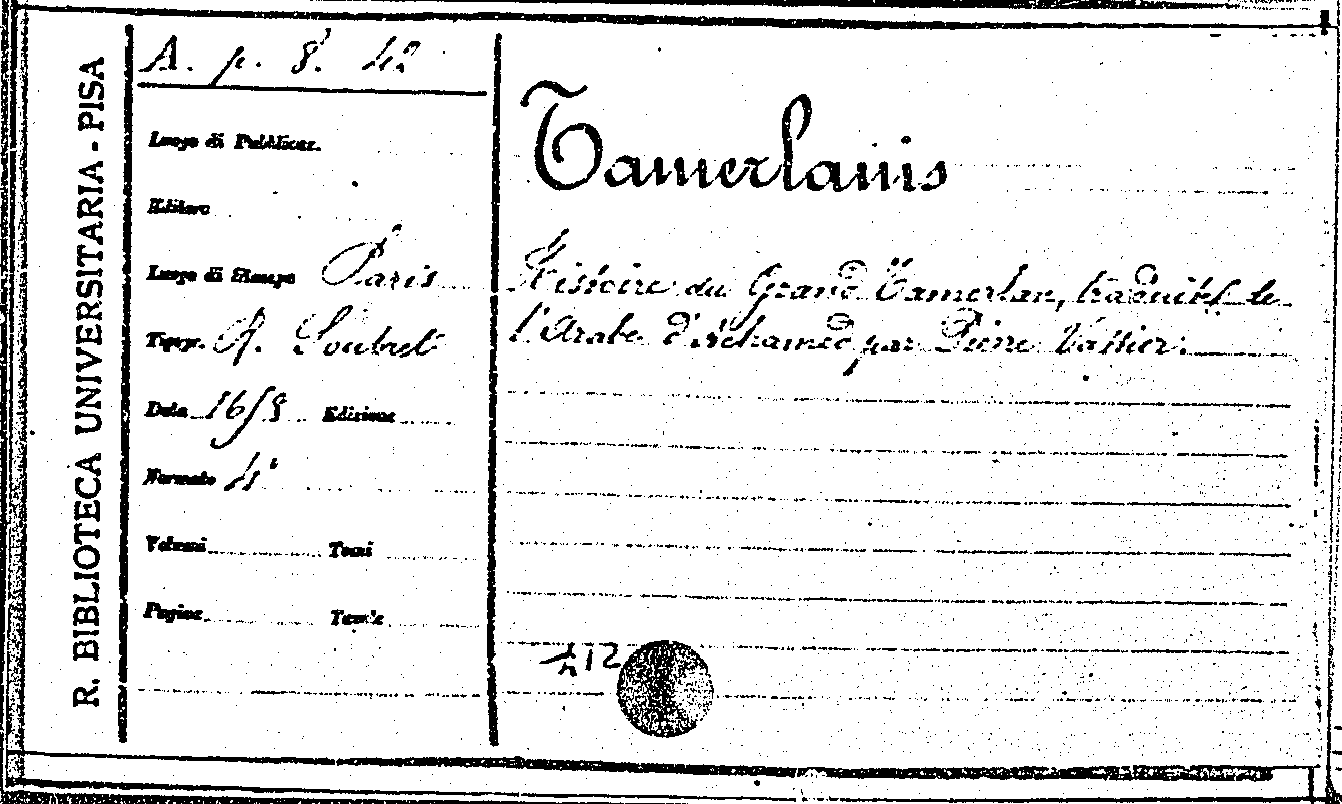 R. BIBLIOTECA UNIVERSITARIA - PISA
A. p. 8. 42
Luogo di Pubblicaz.
Editore
Luogo di Stampa Paris
Tipogr. A. Soubret
Data 1658 Edizione
Formato 4°
Volumi Tomi
Pagine Tavole
Tamerlanis
Histoire du Grand Tamerlan, traduite de
l'Arabe d'Achamed par Pierre Vattier.
412